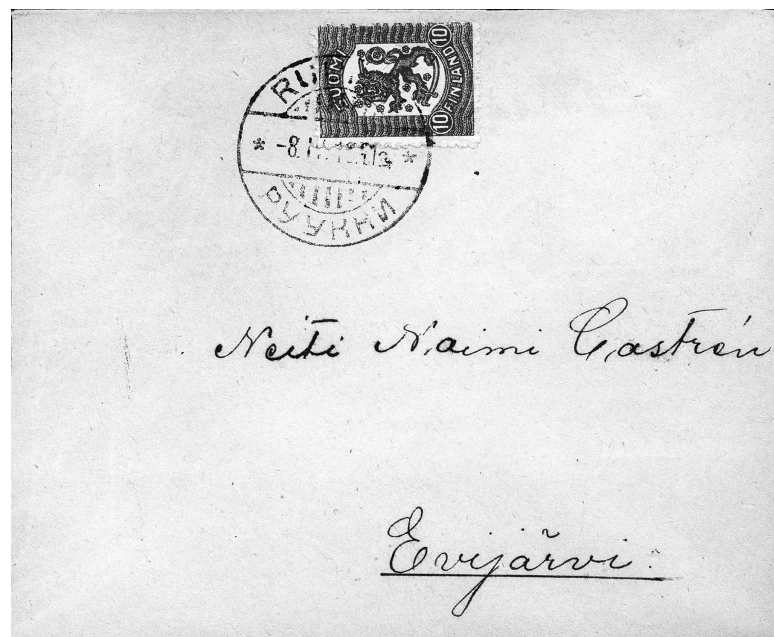 SUOMI
FINLAND
10
10
РУУККИ
Neiti Naimi Castrén
Evijärvi.